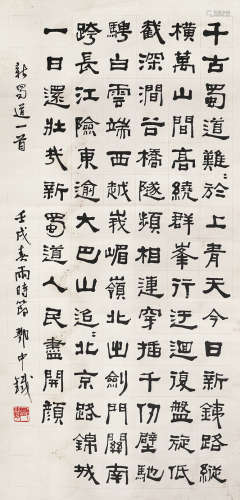 千古蜀道難〻於上青天今日新銕路縱
橫萬山間高繞群峯行迂迴復盤旋低
截深澗谷橋隧頻相連穿插千仞壁馳
騁白雲端西越峩嵋嶺北出劍門關南
跨長江險東逾大巴山追〻北京路錦城
一日還壯哉新蜀道人民盡開顏
新蜀道一首
壬戌春雨時節 鄭中